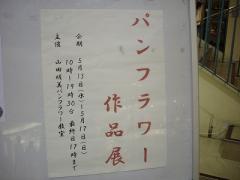 パンフラワー
作品展
会期 5月13日(水)~5月17日(日)
10時~19時30分 最終日17時まで
主催 山田明美パンフラワー教室